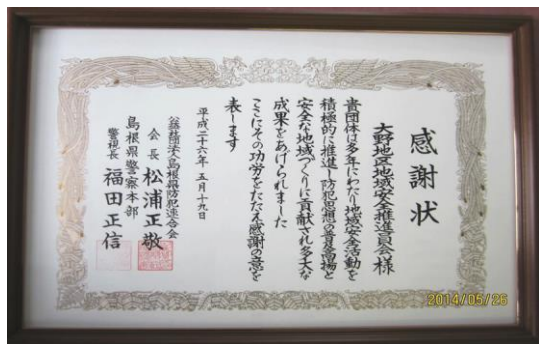 感謝状
大野地区地域安全推進員会様
貴団体は多年にわたり地域安全活動を
積極的に推進し防犯思想の普及高揚と
安全な地域づくりに貢献され多大な
成果をあげられました
ここにその功労をたたえ感謝の意を
表します
平成二十六年 五月十九日
公益社団法人島根県防犯連合会
会長 松浦正敬
島根県警察本部
警視長 福田正信
2014/05/26